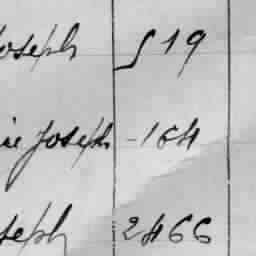 Joseph 519
ie Joseph -164
seph 2466